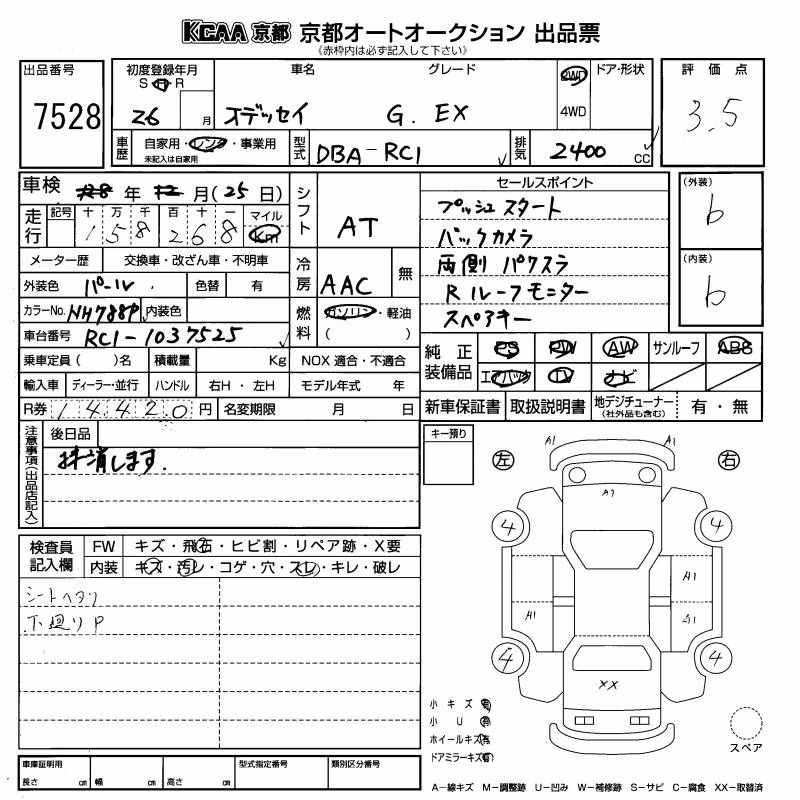 KCAA 京都 京都オートオークション 出品票
《赤枠内は必ず記入して下さい》
出品番号 初度登録年月 車名 グレード 2WD ドア・形状 評価点
S H R
7528 26 月 オデッセイ G. EX 4WD 3.5
車歴 自家用・レンタ・事業用 型式 DBA-RC1 排気 2400 CC
未記入は自家用
車検 年 月(25日) シフト AT セールスポイント (外装)
走行 記号 十 万 千 百 十 一 マイル プッシュスタート b
1 5 8 2 6 8 Km バックカメラ
メーター歴 交換車・改ざん車・不明車 冷房 AAC 無 両側パワスラ (内装)
外装色 パール 色替 有 Rルーフモニター b
カラーNo. NH788P 内装色 燃料 ガソリン・軽油 スペアキー
車台番号 RC1-1037525 ( )
乗車定員( )名 積載量 Kg NOX適合・不適合 純正装備品 PS PW AW サンルーフ ABS
輸入車 ディーラー・並行 ハンドル 右H・左H モデル年式 年 エアバック TV ナビ
R券 14420円 名変期限 月 日 新車保証書 取扱説明書 地デジチューナー(社外品も含む) 有・無
注意事項(出品店記入) 後日品 キー預り
抹消します.
A1 A1
左 右
A1
4 4
検査員記入欄 FW キズ・飛石・ヒビ割・リペア跡・X要
内装 キズ・汚レ・コゲ・穴・スレ・キレ・破レ
シートヘタリ A1
下廻りP A1 A1
4 4
XX
小キズ 有
小U 有
ホイールキズ 有
ドアミラーキズ 有
スペア
車庫証明用 型式指定番号 類別区分番号
長さ cm 幅 cm 高さ cm
A-線キズ M-調整跡 U-凹み W-補修跡 S-サビ C-腐食 XX-取替済